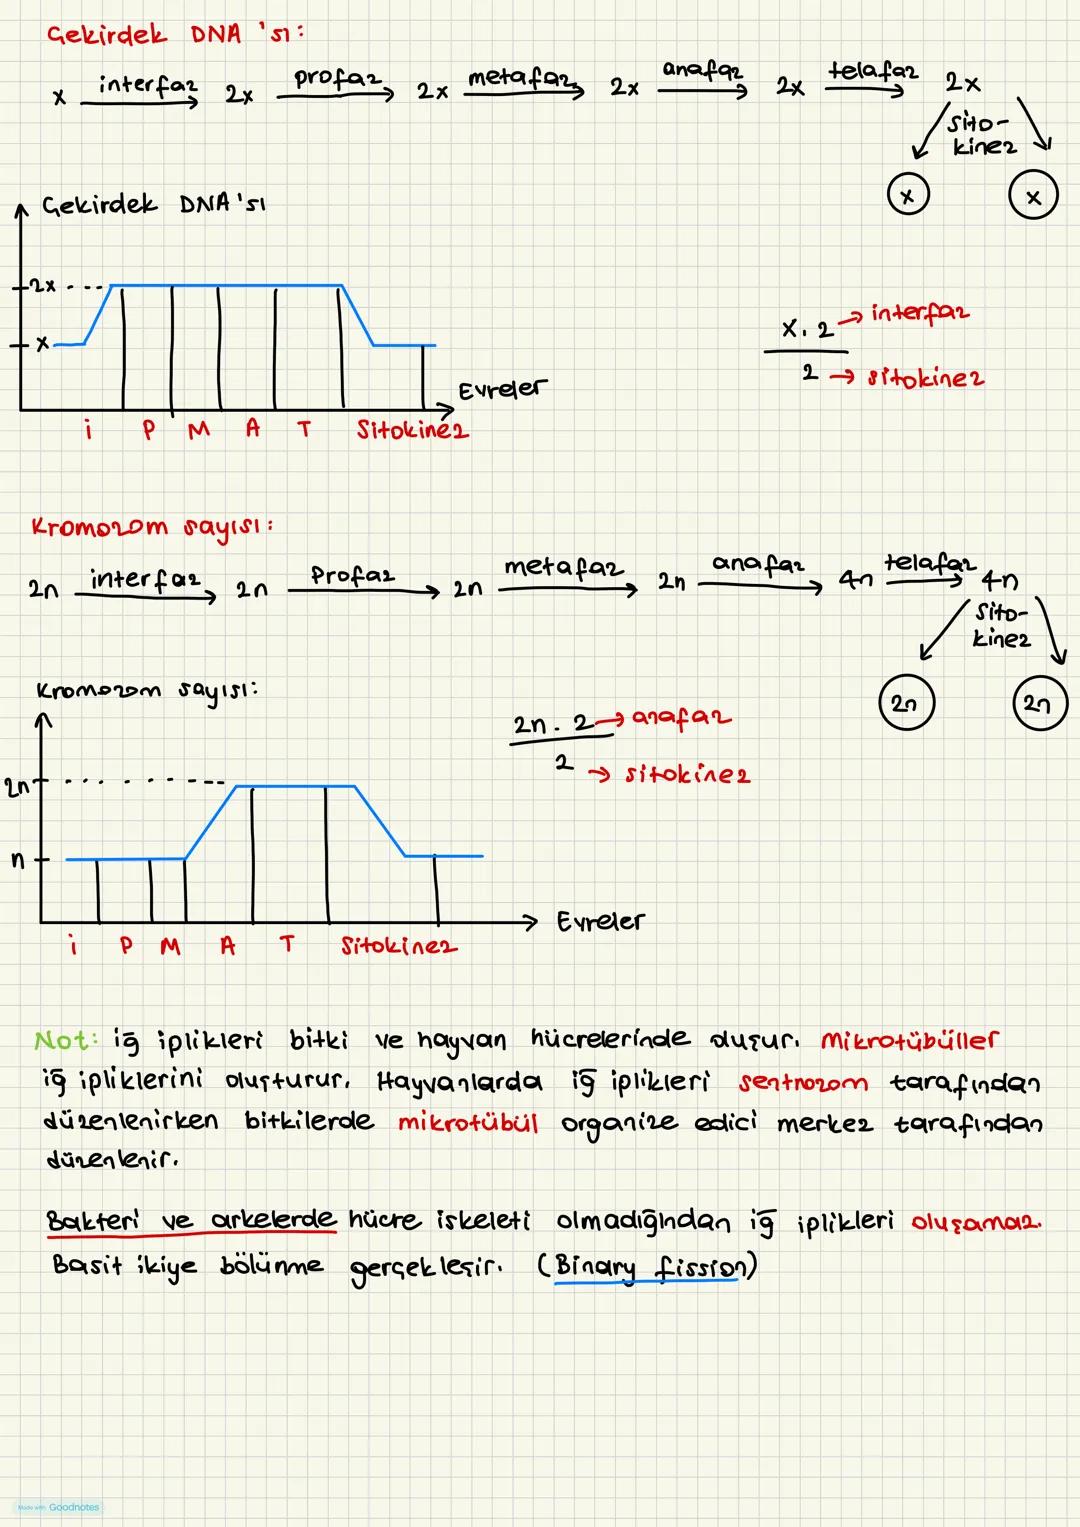 Çekirdek DNA'sı:
x interfaz 2x profaz 2x metafaz 2x anafaz 2x telafaz 2x
Sito-
kinez
x x
Çekirdek DNA'sı
2x
x
Evreler
i P M A T Sitokinez
x . 2 → interfaz
2 → sitokinez
Kromozom sayısı:
2n interfaz 2n Profaz 2n metafaz 2n anafaz 4n telafaz 4n
Sito-
kinez
2n 2n
Kromozom sayısı:
2n
n
Evreler
i P M A T Sitokinez
2n . 2 → anafaz
2 → sitokinez
Not: iğ iplikleri bitki ve hayvan hücrelerinde oluşur. Mikrotübüller
iğ ipliklerini oluşturur. Hayvanlarda iğ iplikleri sentrozom tarafından
düzenlenirken bitkilerde mikrotübül organize edici merkez tarafından
düzenlenir.
Bakteri ve arkelerde hücre iskeleti olmadığından iğ iplikleri oluşamaz.
Basit ikiye bölünme gerçekleşir. (Binary fission)
Made with Goodnotes